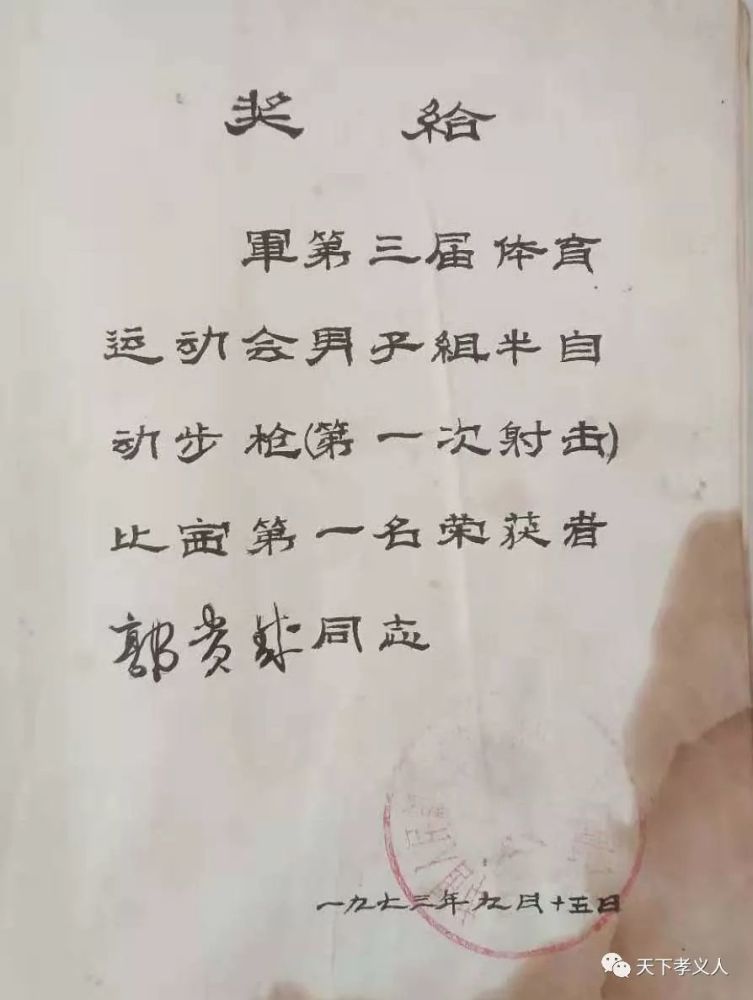 奖 給
軍第三届体育
运动会男子組半自
动步枪(第一次射击)
比赛第一名荣获者
郭贵球同志
一九七三年九月十五日
天下孝义人